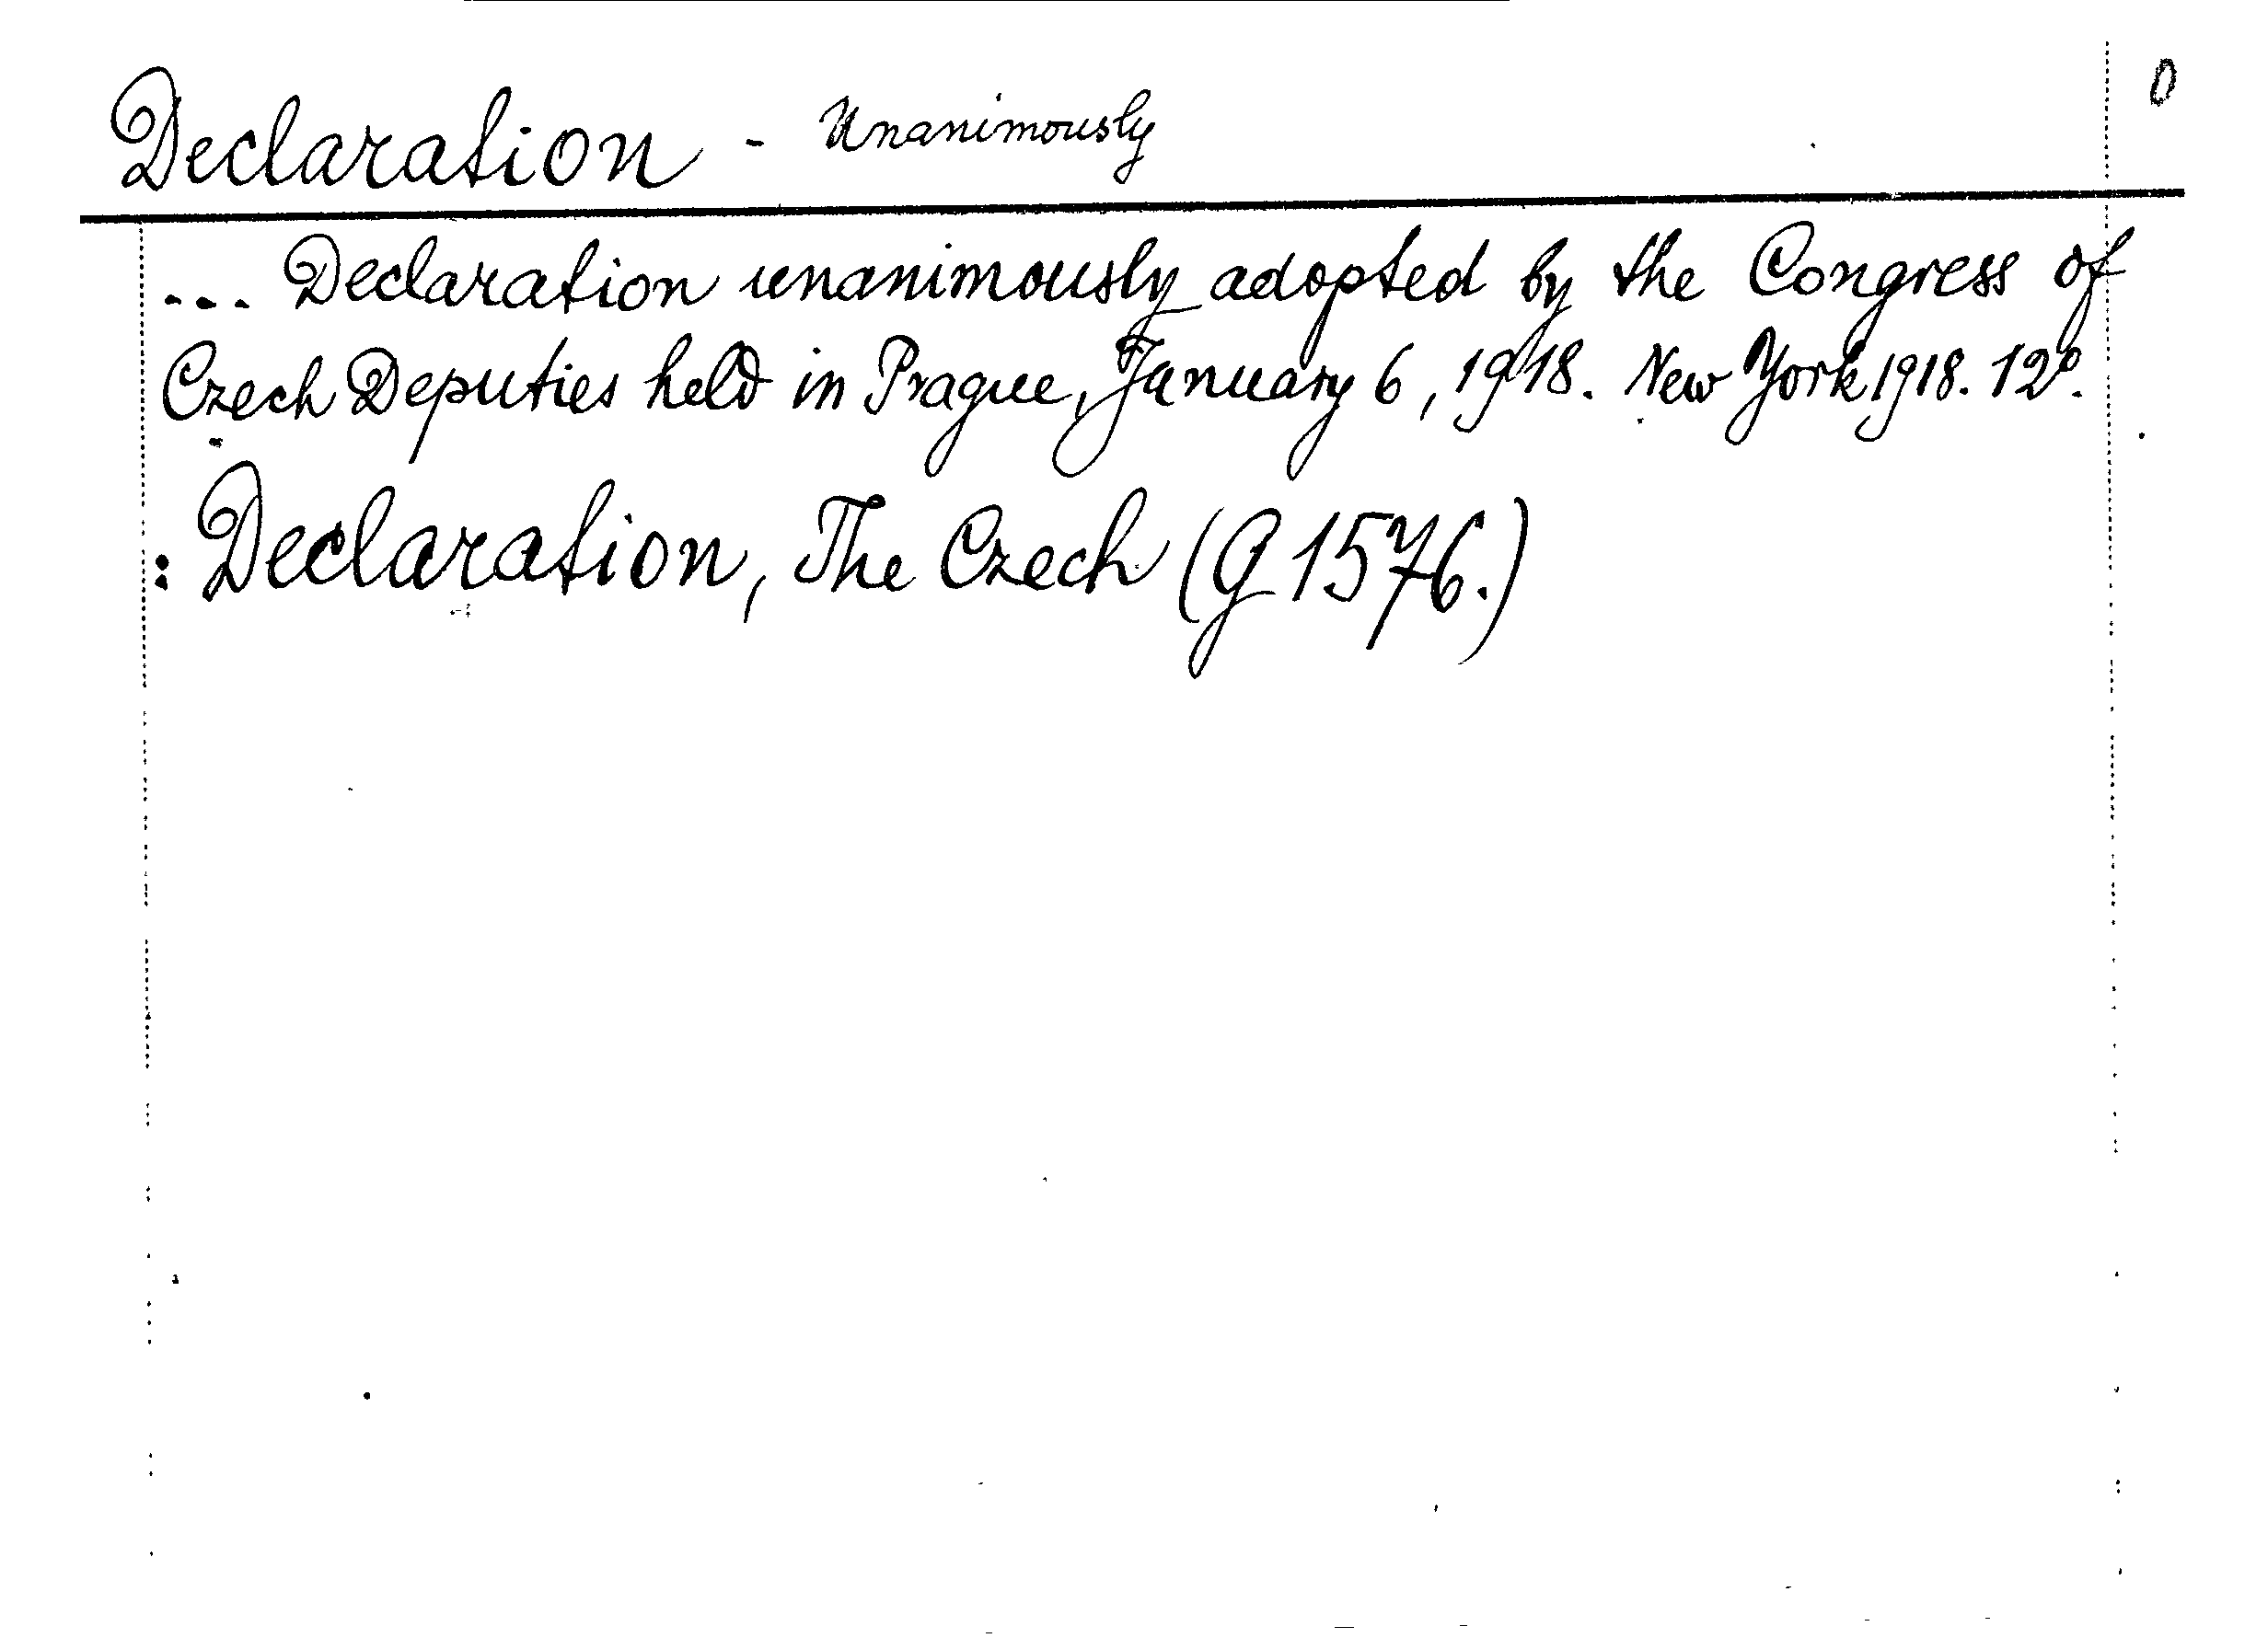 Declaration - Unanimously 0
... Declaration unanimously adopted by the Congress of
Czech Deputies held in Prague, January 6, 1918. New York 1918. 12°.
: Declaration, The Czech (G 1576.)